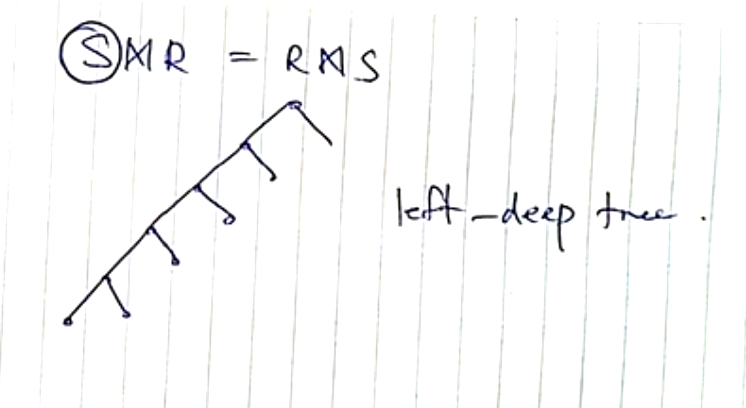 S⋈R = R⋈S
left-deep tree.